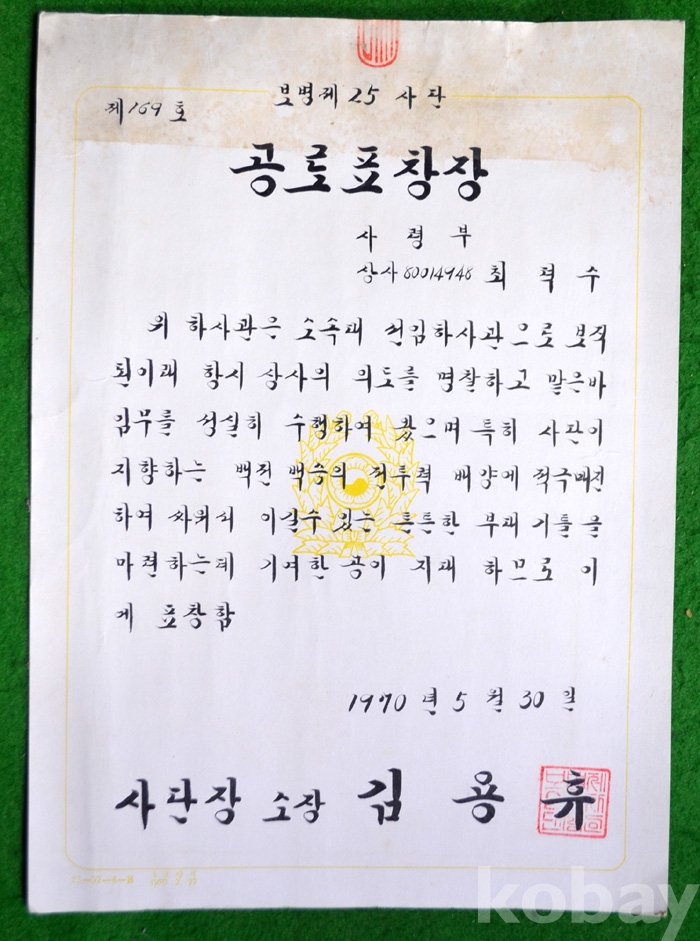 보병제 25 사단
제 169 호
공로표창장
사령부
상사 80014948 최덕수
위 하사관은 소속대 선임하사관으로 보직
된이래 항시 상사의 의도를 명찰하고 맡은바
임무를 성실히 수행하여 왔으며 특히 사단이
지향하는 백전 백승의 전투력 배양에 적극매진
하여 싸워서 이길수 있는 튼튼한 부대 기틀을
마련하는데 기여한 공이 지대 하므로 이
에 표창함
1970 년 5 월 30 일
사단장 소장 김용휴
kobay